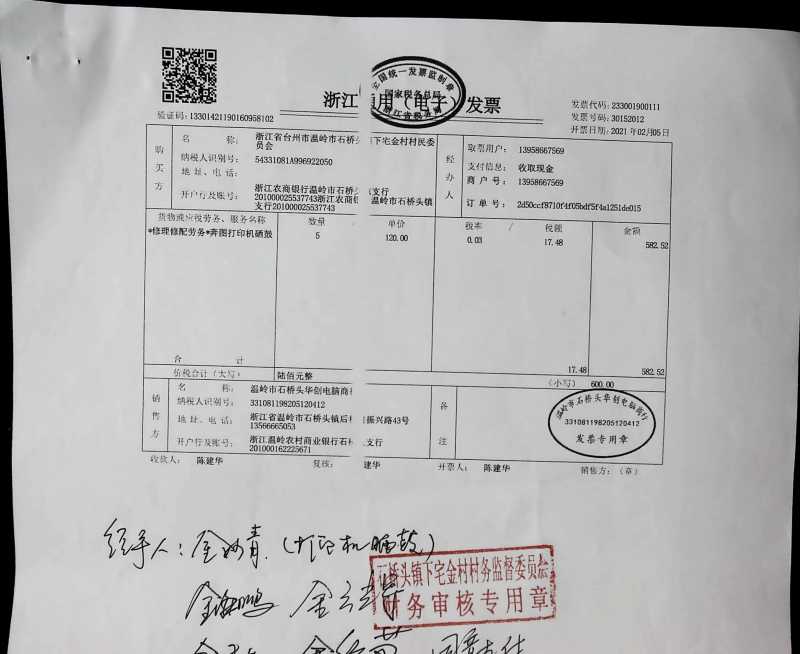 全国统一发票监制章
国家税务总局
浙江省税务局
浙江通用（电子）发票
验证码：13301421190160958102
发票代码：233001900111
发票号码：30152012
开票日期：2021 年02月05日
购买方
名 称：浙江省台州市温岭市石桥头 下宅金村村民委员会
纳税人识别号：54331081A996922050
地 址、电 话：
开户行及账号：浙江农商银行温岭市石桥头 支行
201000025537743浙江农商 温岭市石桥头镇
支行201000025537743
经办人
取票用户：13958667569
支付信息：收取现金
商 户 号：13958667569
订 单 号：2d50ccf8710f4f05bdf5f4a1251de015
货物或应税劳务、服务名称 数量 单价 税率 / 税额 金额
*修理修配劳务*奔图打印机硒鼓 5 120.00 0.03 17.48 582.52
合 计 17.48 582.52
价税合计（大写） 陆佰元整 （小写） 600.00
销售方
名 称：温岭市石桥头华创电脑商行
纳税人识别号：331081198205120412
地 址、电 话：浙江省温岭市石桥头镇后 振兴路43号
13566665053
开户行及账号：浙江温岭农村商业银行石 支行
201000162225671
备注
温岭市石桥头华创电脑商行
331081198205120412
发票专用章
收款人： 陈建华 复核： 建华 开票人： 陈建华 销售方：（章）
经手人：金妙青（打印机硒鼓）
石桥头镇下宅金村村务监督委员会
财务审核专用章
同意支付